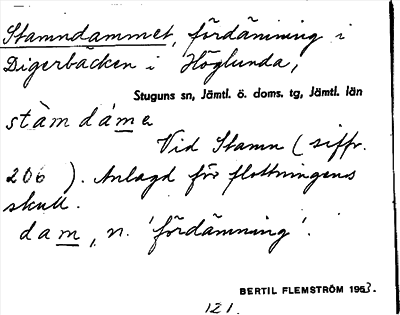 Stamndammet, fördämning i
Digerbäcken i Höglunda,
Stuguns sn, Jämtl. ö. doms. tg, Jämtl. län
stàm dáme
Vid Stamn (siffr.
206 ). Anlagd för flottningens
skull.
dam, n. 'fördämning'.
BERTIL FLEMSTRÖM 1953.
121.